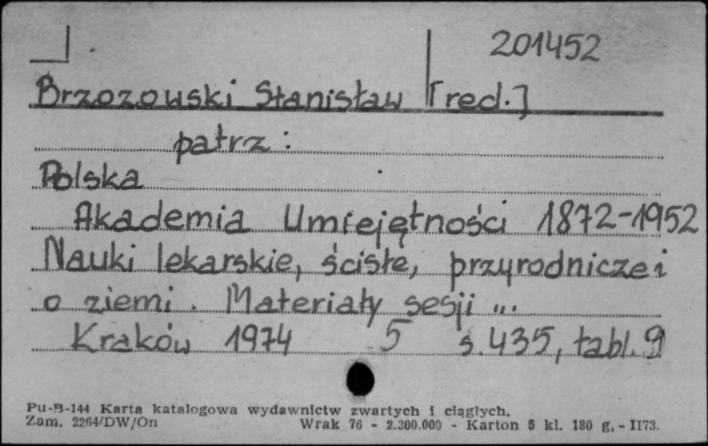 201452
Brzozowski Stanisław [red.]
patrz:
Polska
Akademia Umiejętności 1872-1952
Nauki lekarskie, ścisłe, przyrodnicze i
o ziemi. Materiały sesji ...
Kraków 1974 5 s. 435, tabl. 9
Pu-B-144 Karta katalogowa wydawnictw zwartych i ciągłych.
Zam. 2264/DW/On Wrak 76 - 2.300.000 - Karton 5 kl. 180 g. - II73.